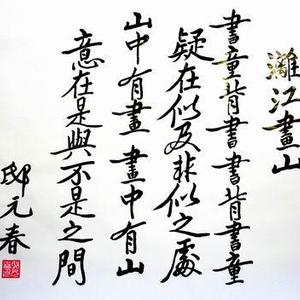 灘江畫山
書童背書書背書童
疑在似及非似之處
山中有畫畫中有山
意在是與不是之間
邸元春